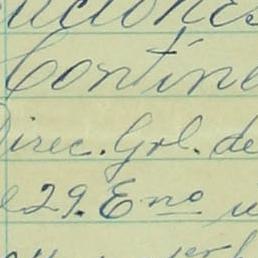 uciones
Contine
Direc. Grl. de
29. Eno